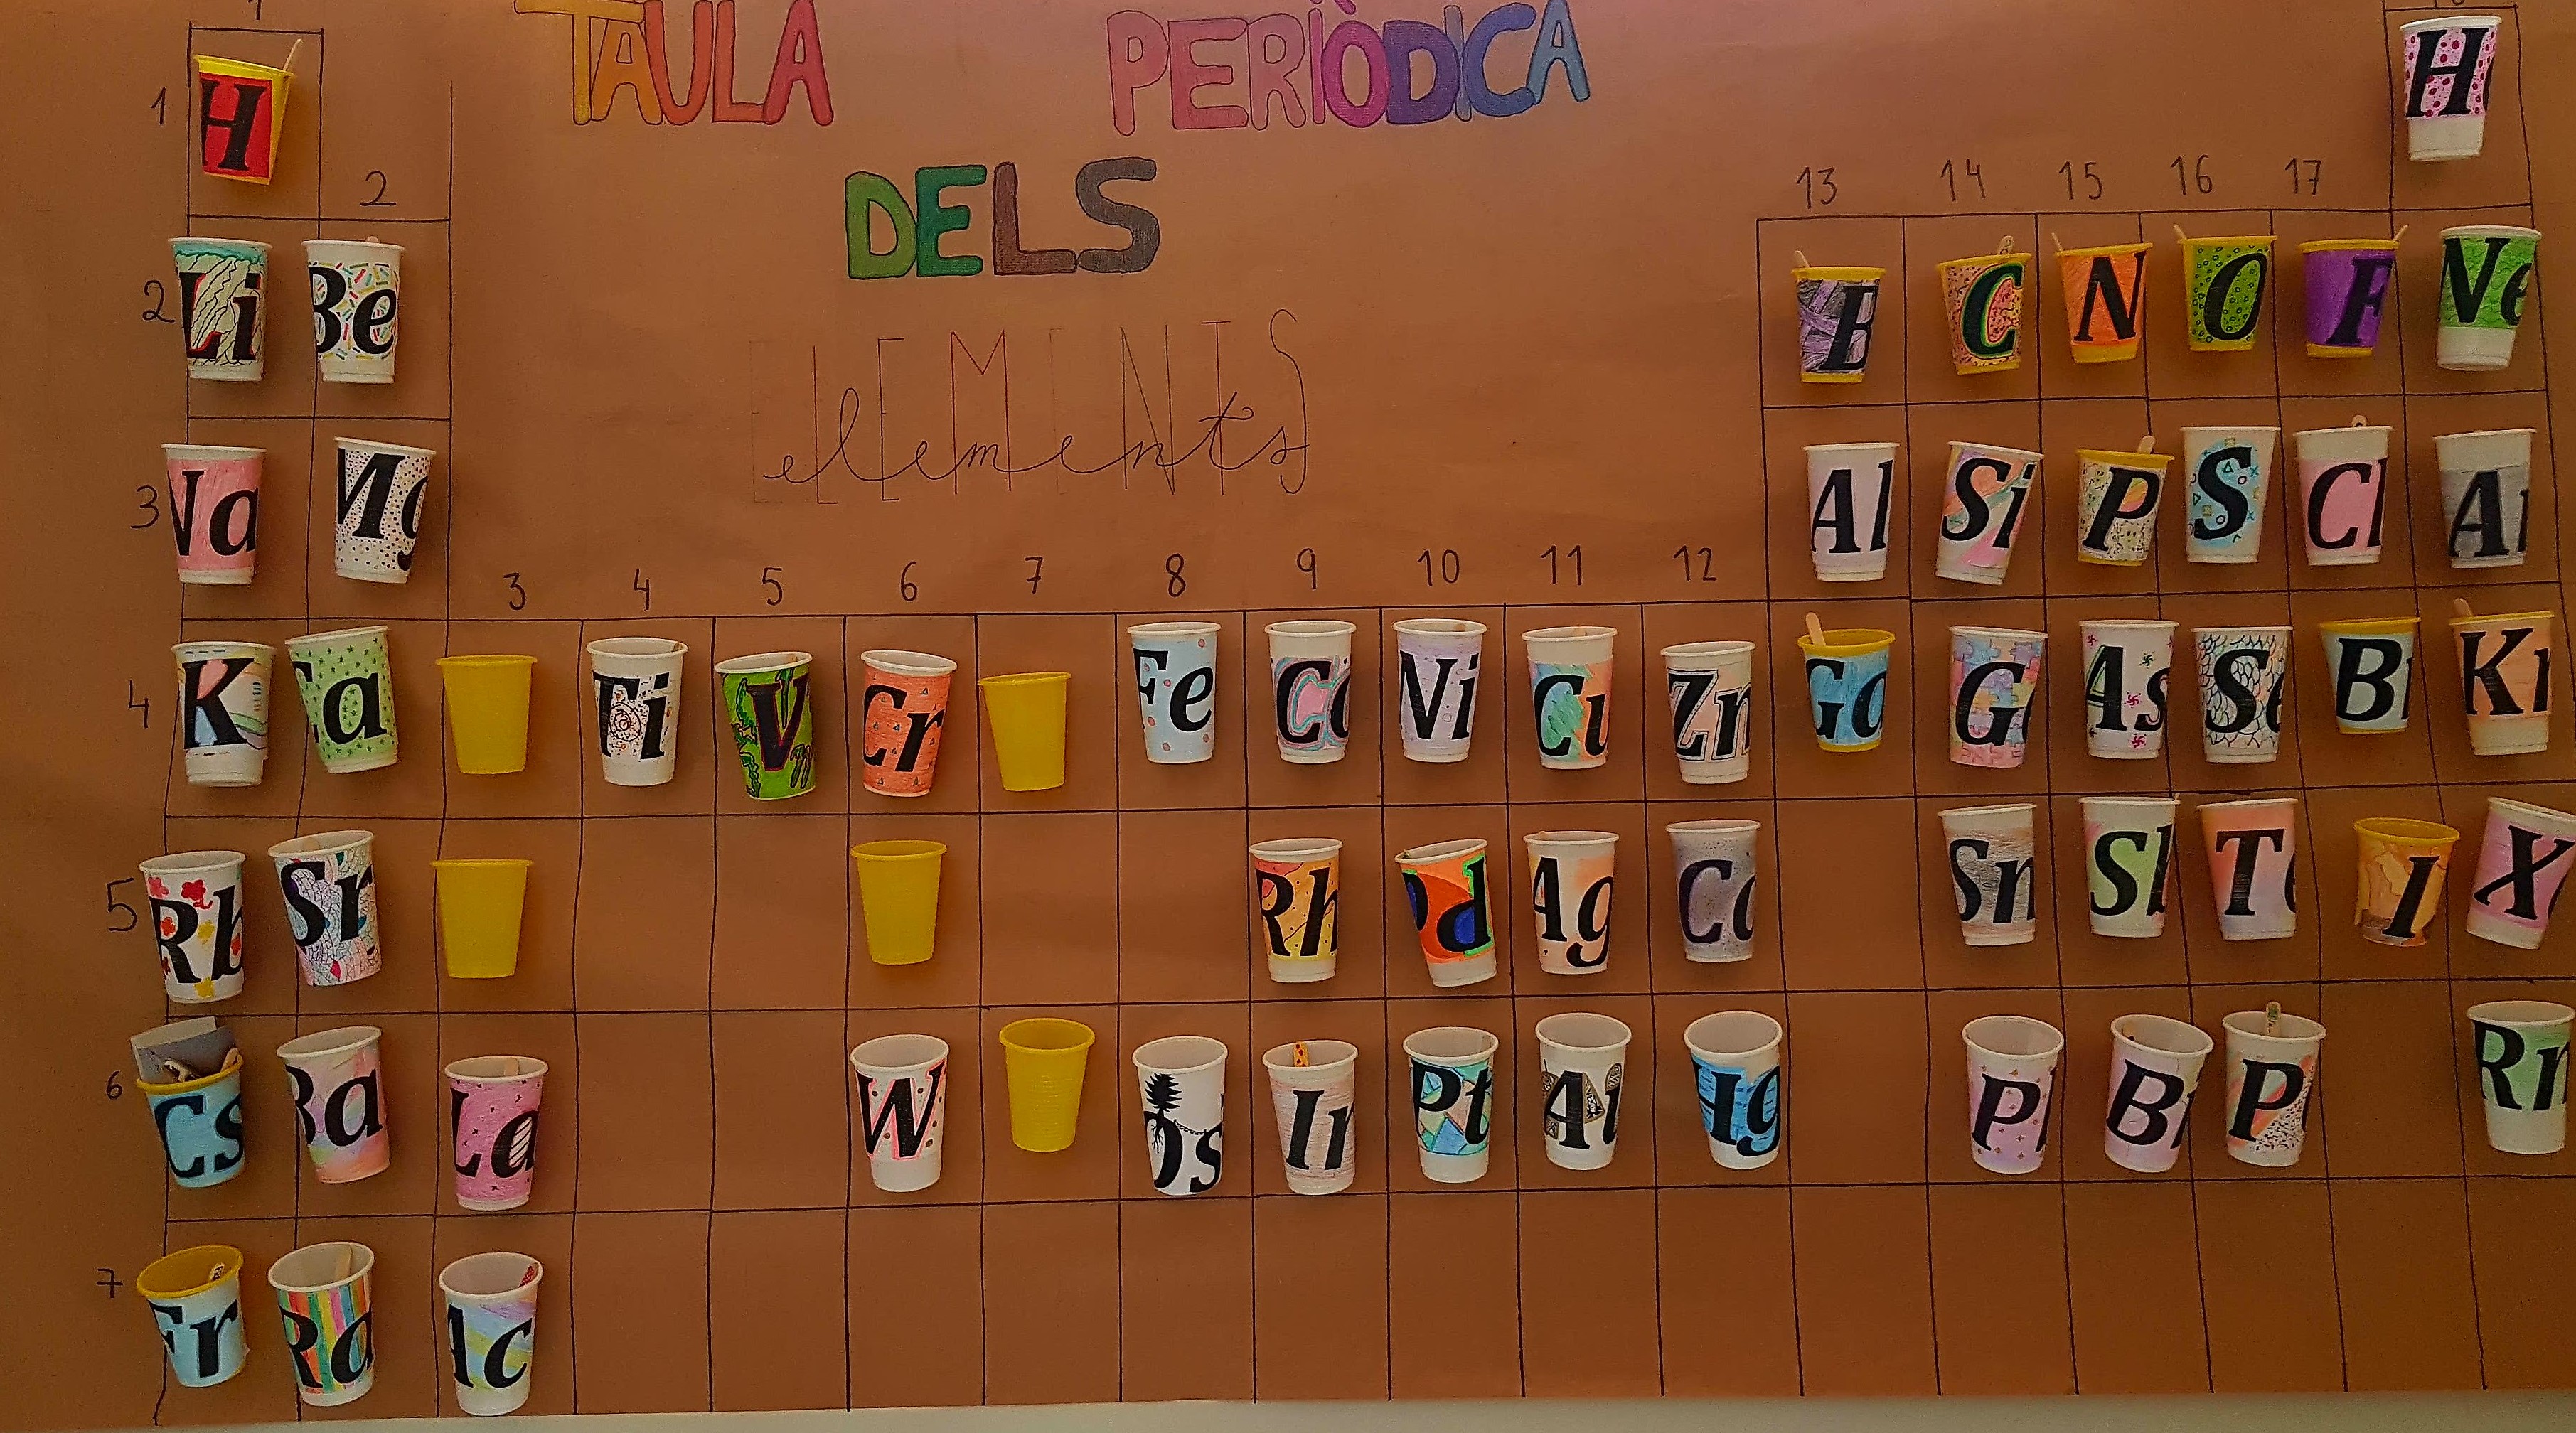 1
TAULA PERIÒDICA
1 H H
DELS
2 13 14 15 16 17
2 Li Be B C N O F Ne
ELEMENTS
elements
3 Na Mg Al Si P S Cl Ar
3 4 5 6 7 8 9 10 11 12
4 K Ca Ti V Cr Fe Co Ni Cu Zn Ga G As Se Br Kr
5 Rb Sr Rh Pd Ag Cd Sn Sb Te I Xe
6 Cs Ba La W Os Ir Pt Au Hg Pb Bi P Rn
7 Fr Ra Ac